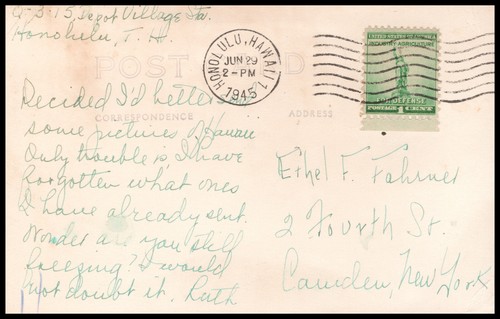 G-3-15, Depot Village Sta.
Honolulu, T. H.
POST CARD
HONOLULU, HAWAII 1
JUN 29
2-PM
1945
UNITED STATES OF AMERICA
INDUSTRY-AGRICULTURE
FOR DEFENSE
POSTAGE 1 CENT
CORRESPONDENCE
ADDRESS
Decided I'd better send
some pictures of Hawaii
Only trouble is I have
forgotten what ones
I have already sent.
Wonder are you still
freezing? I would
not doubt it. Ruth
Ethel F. Fahrner
2 Fourth St.
Camden, New York